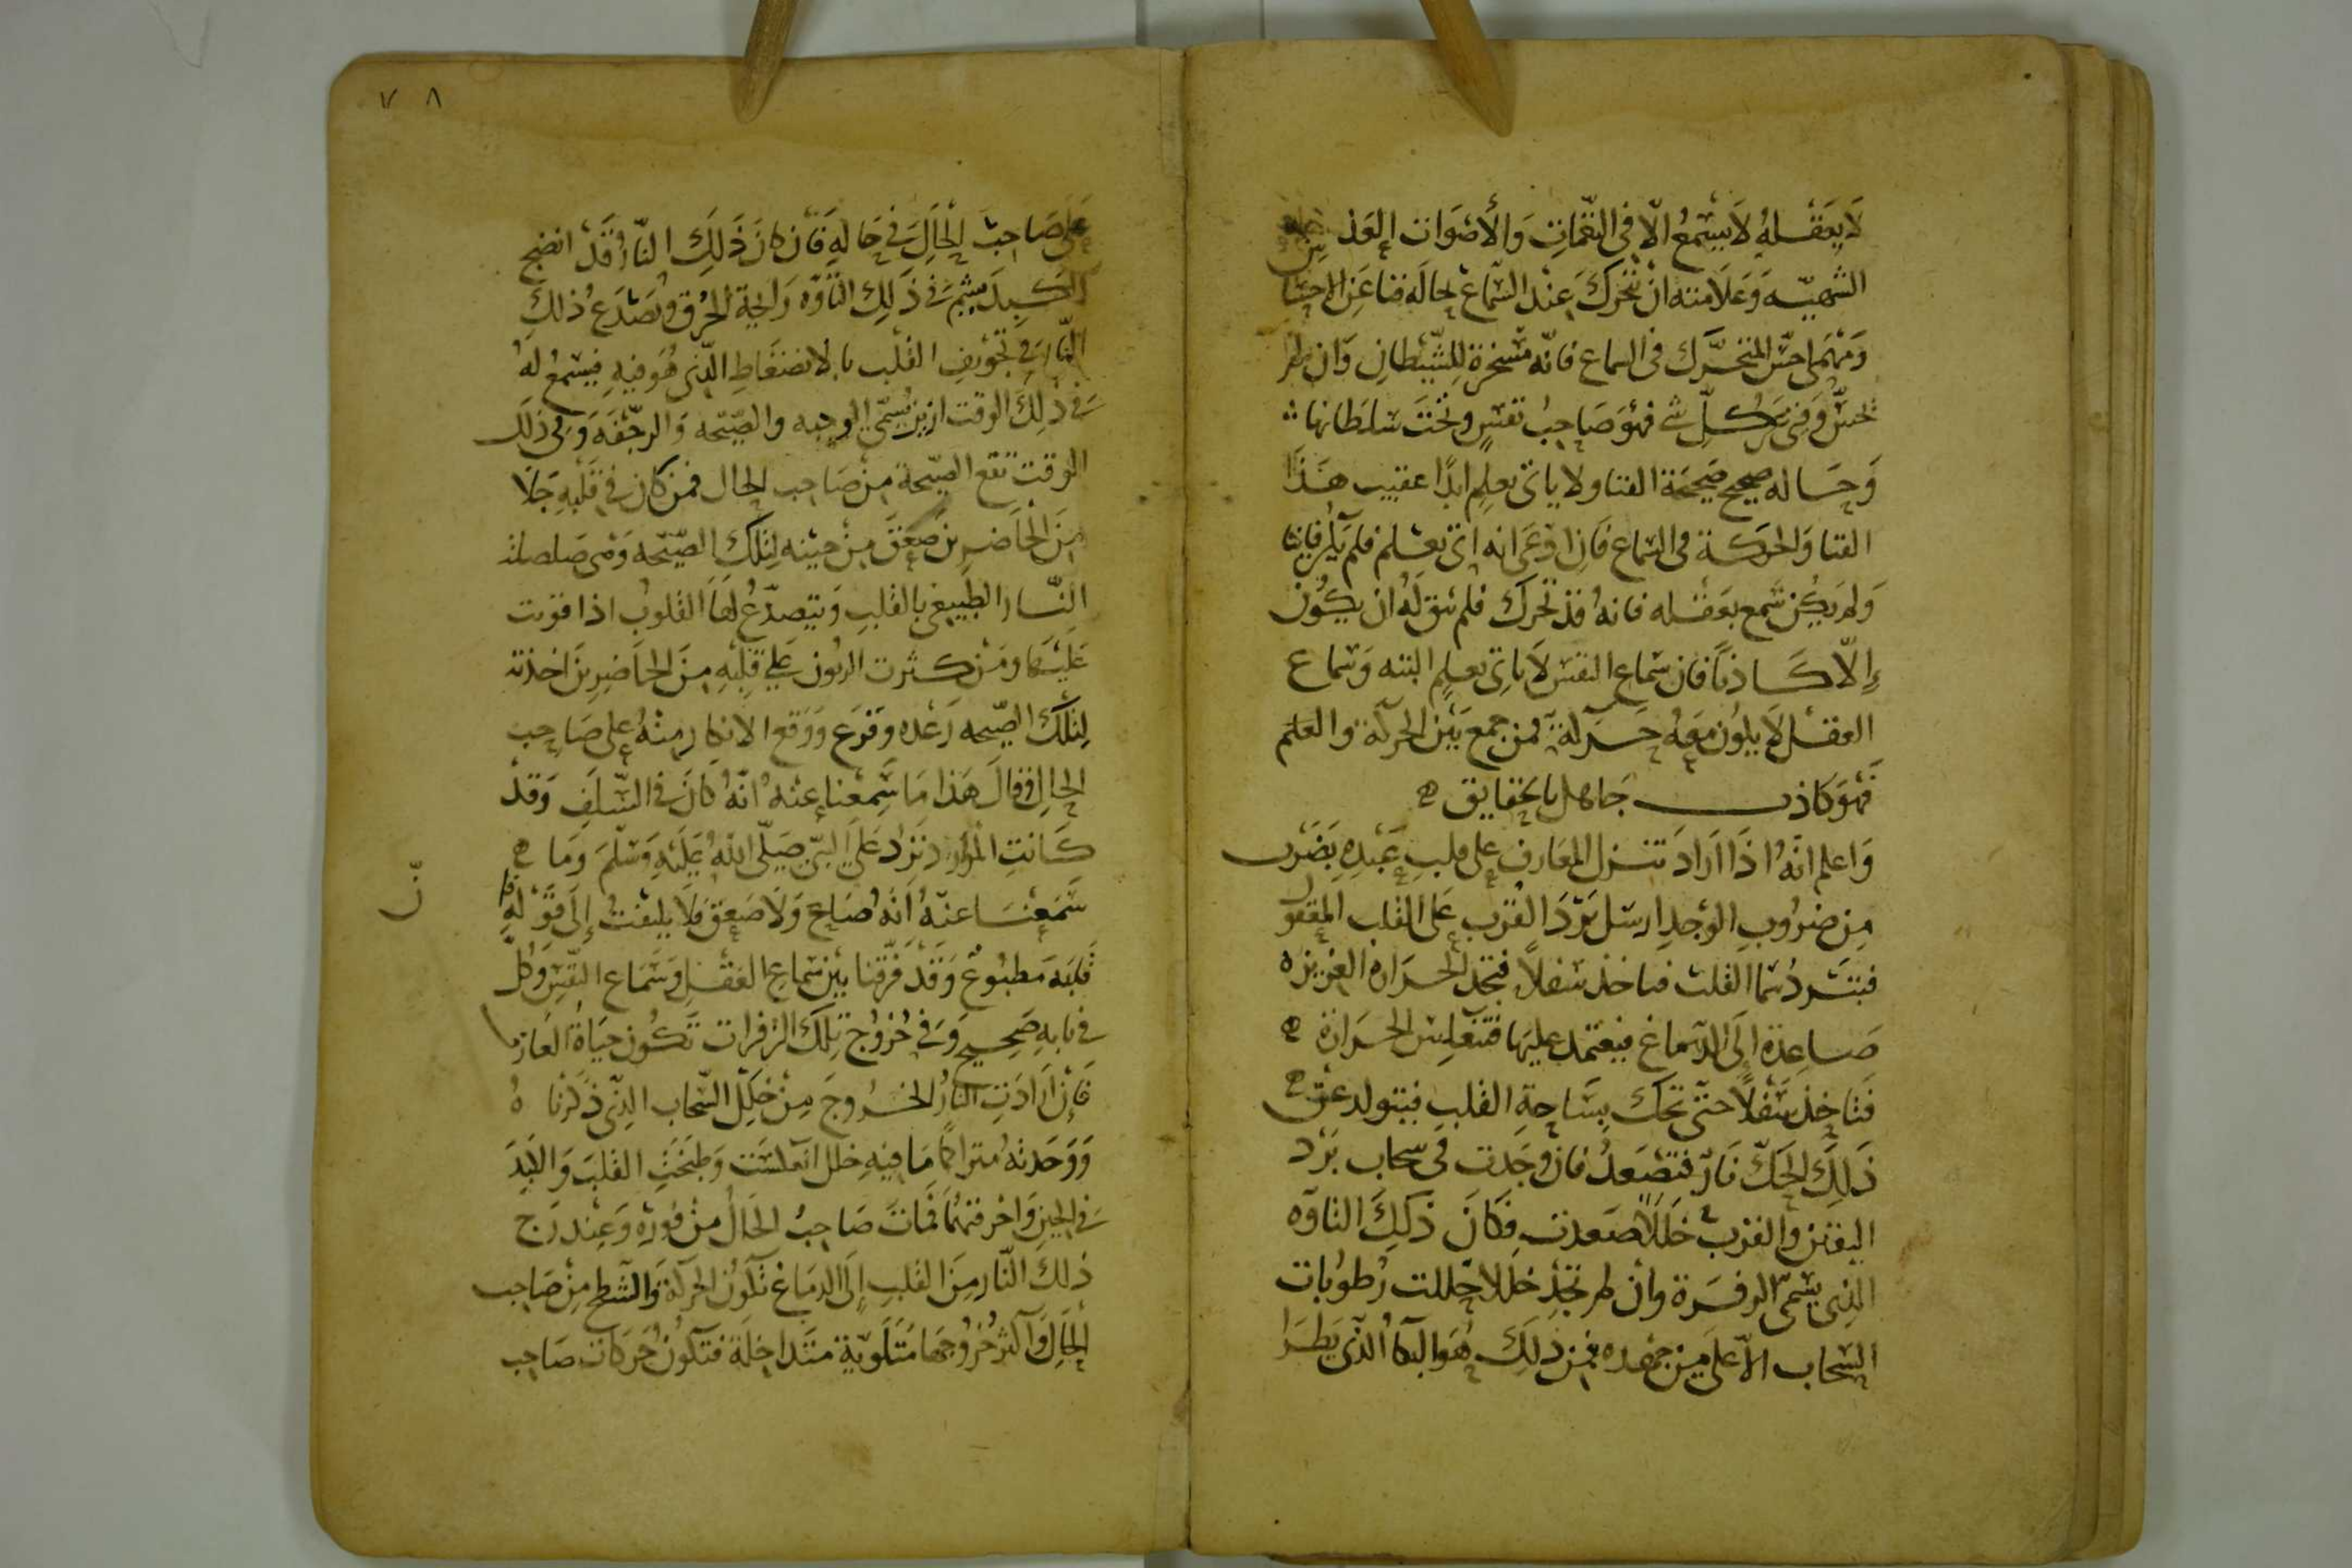 لَا يَعْقلهُ لَا يَسْمَعُ الّا فى النّغمَاتِ وَالأَصْوَات العَذ
الشهيّه وَعَلَامته انْ تتحرك عِنْد السّماع لحالَه فنا عَن الاحسَا
وَمَهْمَا احسّ المتحَرَّك فى السماع فانّه مَسْخرة لِلشّيْطَانِ وَان لم
يحسّ وَفنى عن كلّ شى فهوَ صَاحِبُ نفسٍ وتحْتَ سُلطَانها
وَحَاله صحيح صَحيحَة الفنا ولا ياتى بعلِم ابدًا عقيب هَذَا
الفنا وَالحركة فى السماع فَان ادّعَى انه اتى بعِلم فلم يكن فانيًا
وَلم يَكُن سَمع بعَقْله فانهُ قد تحرك فلم يبق لَهُ ان يكُون
إِلّا كَاذبًا فان سَماع النفس لَا ياتى بعلِمٍ البته وَسَماع
العقل لَا يكون مَعَهُ حَركَة فمن جمع بَيْن الحركة والعلم
فَهوَ كاذب جَاهل بالحقايق
وَاعلم انّهُ اذَا ارَادَ تنزل المعَارف على قلبِ عَبْدِهِ بضَرْب
مِن ضروُبِ الوَجدِ ارسَل بَرْدَ القُرب عَلى القلب المعقول
فيتبَرد سَما القَلب فياخذ سفلاً فيجد الحرَارة الغريزه
صَاعِدة إلَى الدّماغ فيعتمد عليهَا فتنعَكِسُ الحرَارة
فتاخذ سَفْلاً حتّى تحك بِسَاحةِ القلبِ فيتولد عن
ذَلِكَ الحَكّ نَارٌ فتصْعَدُ فان وَجَدت فى سحاب بَرْد
اليقين والقرب خَلَلاً صَعدت فَكَانَ ذَلِكَ التاوّه
الذى يسَمى الزفرَة وانْ لم تَجِدْ خللا حَلّلت رُطُوبات
السحاب الاعلى من جهده فمن ذلِكَ هُوَ البكا الذى يَطرَا
عَلَى صَاحِب الحَالِ فى حَالهِ فَان كانَ ذَلِكَ النّارُ قَدْ انضج
الكَبِدَ يشمّ فى ذَلِكَ التاوّه رَايحة الحُرق وَتصَدَع ذلك
النّار فى تجْويفِ القلب بالانضغَاطِ الذى هُو فيهِ فيَسْمعُ لهُ
فى ذلِكَ الوقت ازيز يُسمّى الوجبه والصّيحه وَالرجْفَه وَفى ذلك
الوقت تقع الصّيحة مِنْ صَاحب الحَال فمن كان فى قلبهِ خَللًا
مِنَ الحَاضرين صَعِقَ مِنْ حِينه لِتلكَ الصّيحه وَهى صَلصلة
النّار الطبيعى بالقلبِ وَيتصدّعُ لهَا القلوب اذا قويت
عَلَيْهَا ومَن كثرت الديون عَلى قلبِهِ مِنَ الحَاضِرِينَ اخذته
لِتلك الصّيحه رَعْده وَفزَع وَوَقع الانكار منْهُ على صَاحِب
الحالِ فقالَ هَذا مَا سَمِعْنَا عنْهُ انّهُ كانَ فى السّلَفِ وَقَدْ
كَانَتِ المَوَارد تَرِدُ عَلَى النّبىّ صَلّى اللهُ عَليْهِ وَسَلّمَ وَمَا
سَمعْنَا عنهُ انّهُ صَاحَ وَلَا صَعِقَ فلَا يلتفتُ إِلَى قوْلهِ
قلبه مَطبُوعٌ وَقَدْ فَرّقنا بَيْن سَماعِ العَقلِ وَسَمَاع النّفِسِ وَكلّ
فى بابهِ صَحيح وَفى خُرُوجِ تِلكَ الزفرات تكُون حَيَاةُ العَارف
فَإنْ ارَادَتِ النارُ الخُروجَ مِنْ خَللِ السّحاب الذى ذكَرْناه
وَوَجَدتهُ متراكمًا مَا فيهِ خلل انعكسَت وَطبَخَتِ القلبَ وَالكبدَ
فى الحِينِ وَاحْرقتهُمَا فَمَاتَ صَاحِبُ الحَالُ مِنْ فورِهِ وَعِنْد رَج
ذلكَ النّار مِنَ القلبِ إلَى الدمَاغ تكون الحركة وَالشّطح مِنْ صَاحِب
الحَالِ وَاكثر خُرُوجهَا مُتَلَويّة متَداخلَة فتكُونُ حَركات صَاحِب